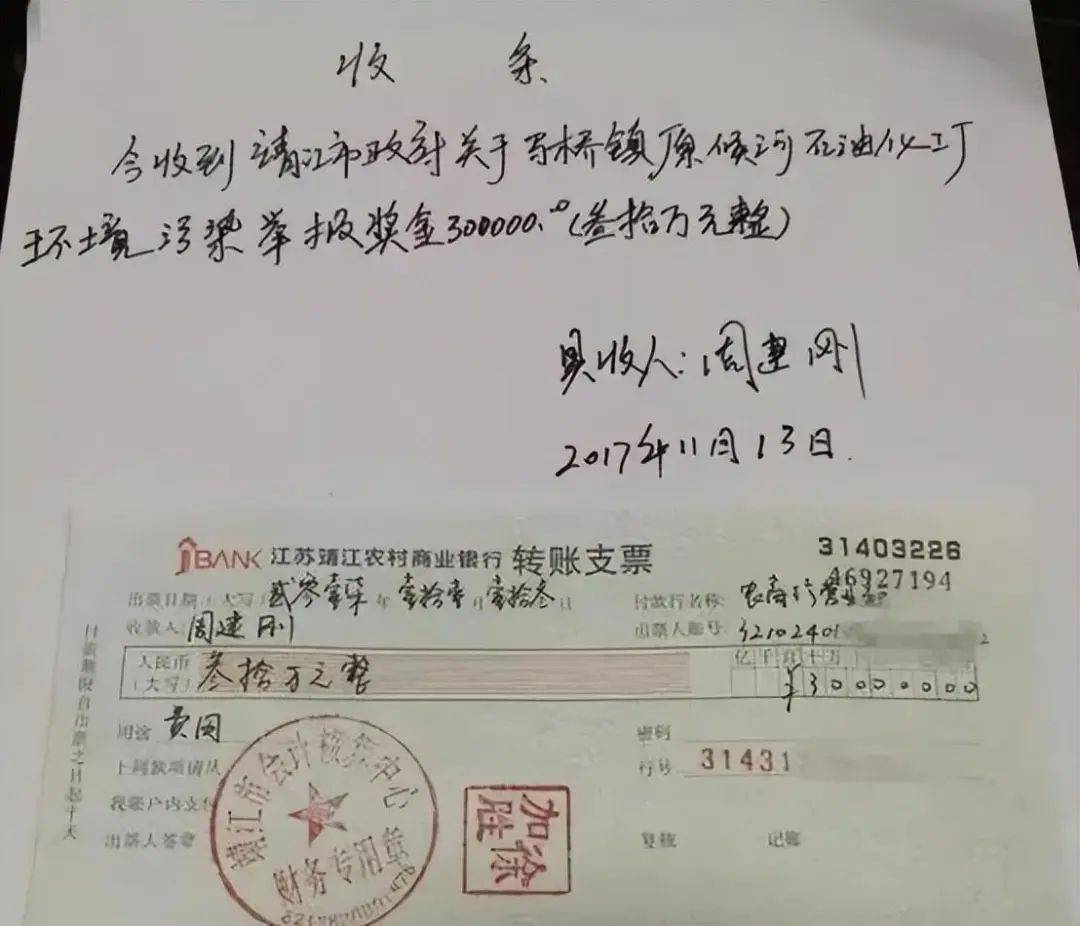 收 条
今收到靖江市政府关于马桥镇原候河石油化工厂
环境污染举报奖金300000.00(叁拾万元整)
具收人:周建刚
2017年11月13日.
BANK 江苏靖江农村商业银行 转账支票 31403226
46927194
出票日期(大写) 贰零壹柒 年 壹拾壹 月 壹拾叁 日 付款行名称: 农商行营业部
收款人: 周建刚 出票人账号: 32102401
人民币 叁拾万元整 亿千百十万
(大写) ¥30000000
用途 费用 密码
上列款项请从 行号 31431
我账户内支付
出票人签章 复核 记账
付款期限自出票之日起十天
靖江市会计核算中心
财务专用章
徐加胜